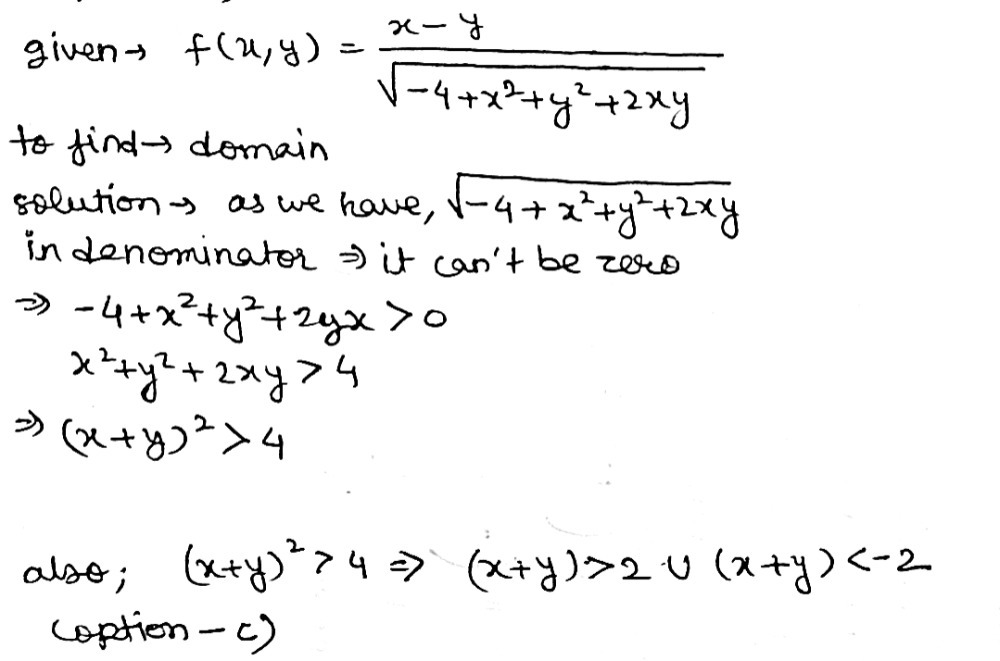 given → f(x,y) = x - y / √-4+x²+y²+2xy
to find → domain
solution → as we have, √-4+x²+y²+2xy
in denominator ⇒ it can't be zero
⇒ -4+x²+y²+2yx > 0
x²+y²+2xy > 4
⇒ (x+y)² > 4
also; (x+y)² > 4 ⇒ (x+y)>2 ∪ (x+y)<-2
(option - c)